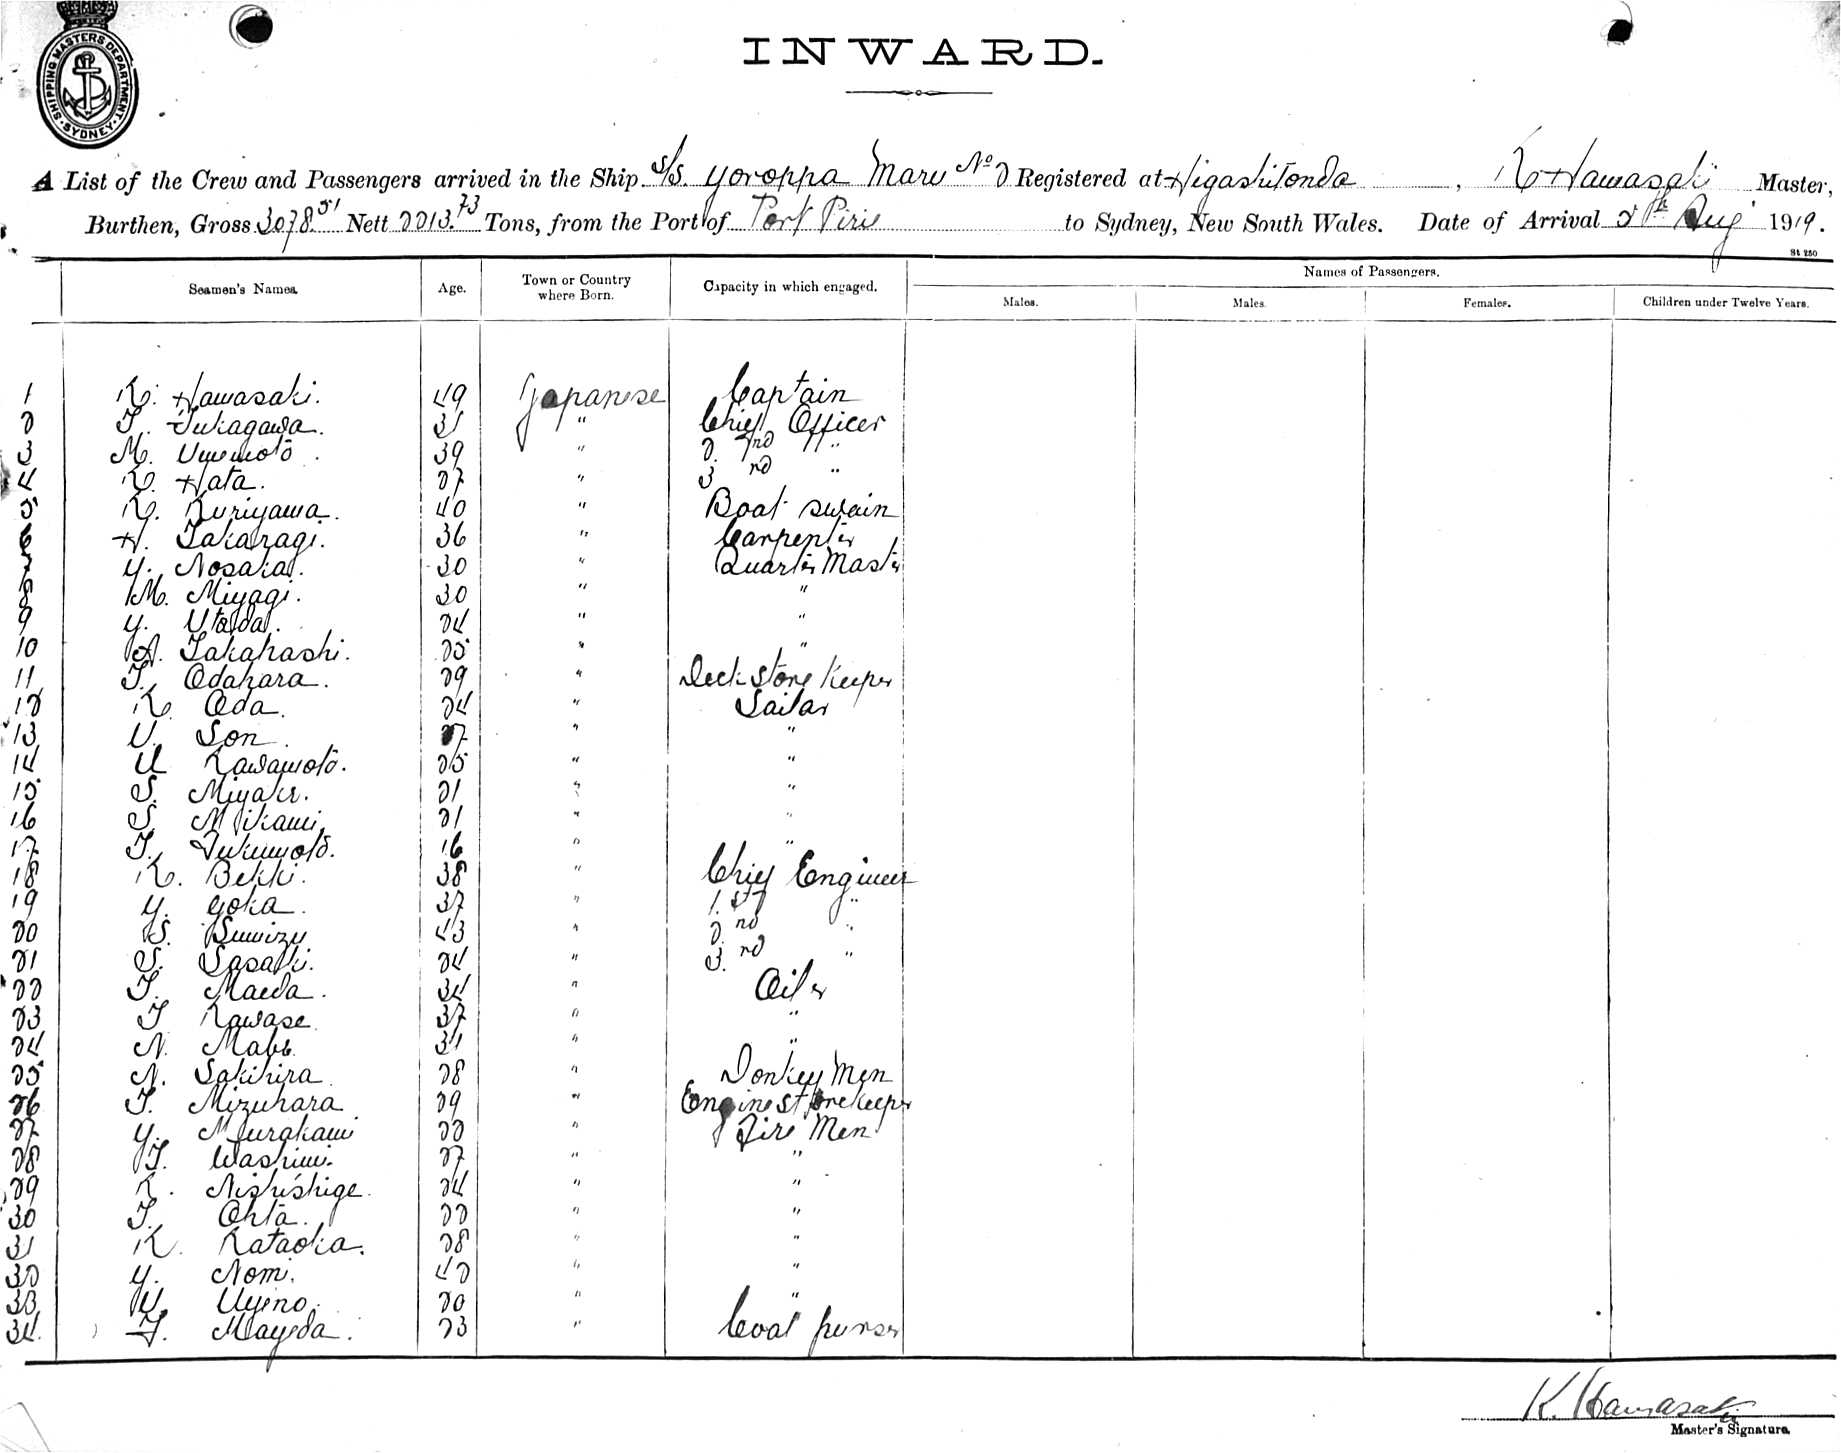 SHIPPING MASTERS DEPARTMENT. SYDNEY.
INWARD.
A List of the Crew and Passengers arrived in the Ship S/S. Yoroppa Maru No 2 Registered at Higashitonda, K Hamasaki Master,
Burthen, Gross 3078.51 Nett 2213.73 Tons, from the Port of Port Pirie to Sydney, New South Wales. Date of Arrival 5th Aug 1919.
St 250
Seamen's Names. Age. Town or Country where Born. Capacity in which engaged. Names of Passengers.
Males. Males. Females. Children under Twelve Years.
1 K. Hamasaki. 49 Japanese Captain
2 T. Fukagawa. 31 " Chief Officer
3 M. Umemoto. 39 " 2nd "
4 K. Hata. 27 " 3rd "
5 K. Kuriyama. 40 " Boat swain
6 H. Takaragi. 36 " Carpenter
7 Y. Nosaka. 30 " Quarter Master
8 M. Miyagi. 30 " "
9 Y. Utada. 24 " "
10 A. Takahashi. 25 " "
11 T. Odahara. 29 " Deck Store Keeper
12 K. Oda. 24 " Sailar
13 U. Son. 27 " "
14 U Kawamoto. 25 " "
15 S. Miyake. 21 " "
16 S. Mikami. 21 " "
17 T. Fukumoto. 16 " "
18 K. Bekki. 38 " Chief Engineer
19 Y. Goka. 37 " 1.st "
20 S. 43 " 2.nd "
21 S. Sasaki. 24 " 3.rd "
22 T. Maeda. 34 " Oiler
23 T Kawase. 37 " "
24 N. Mabe. 31 " "
25 N. Sakihira 28 " Donkey Men
26 T. Mizuhara 29 " Engine Storekeeper
27 Y. Murakami 22 " Fire Men
28 T. Washimi. 27 " "
29 K. Nishishige. 24 " "
30 T. Ohta. 22 " "
31 K. Kataoka. 28 " "
32 Y. Nomi. 42 " "
33 Y. Uyeno. 20 " "
34. T. Mayeda. 23 " Coal purser
K. Hamasaki
Master's Signature.